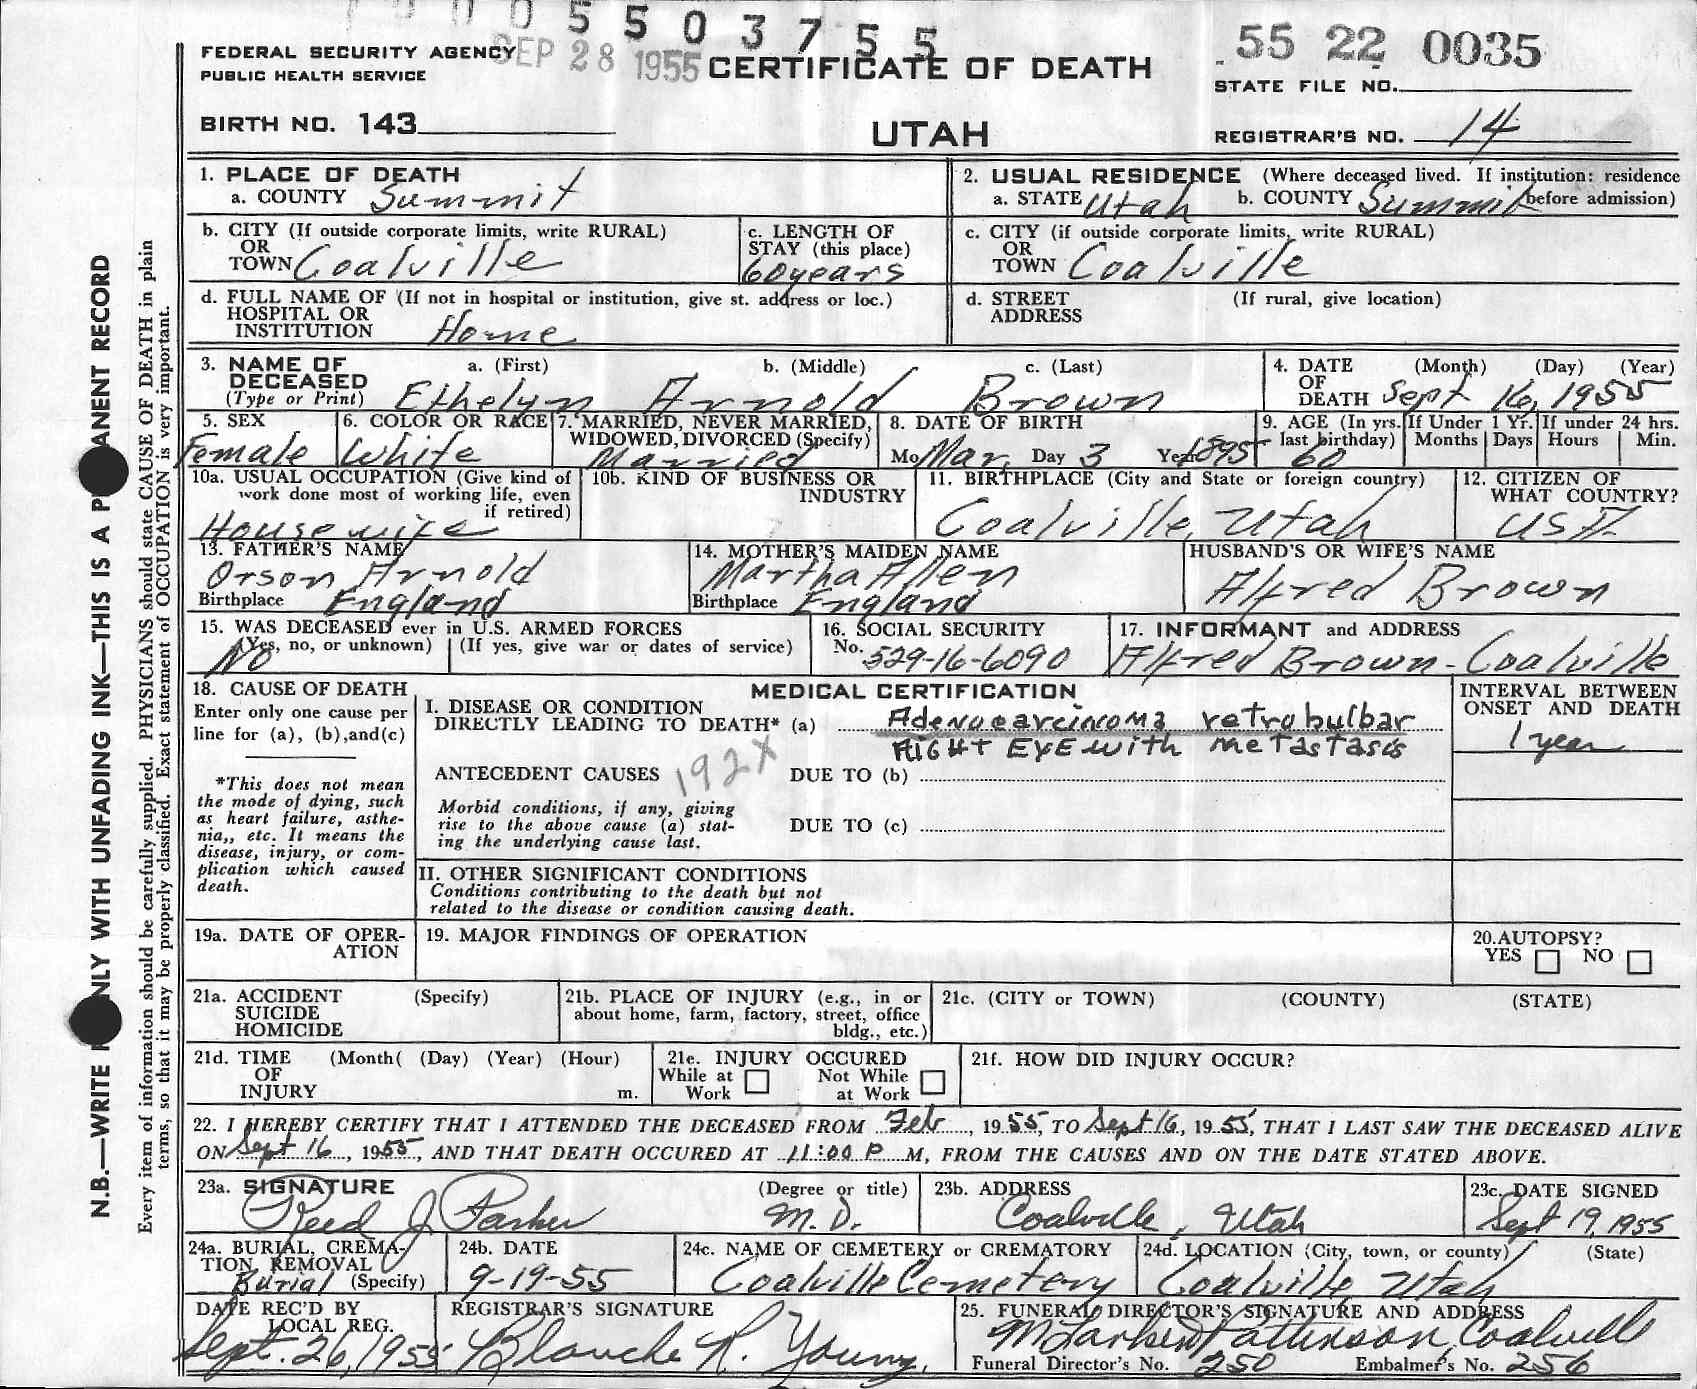 5503755
SEP 28 1955
55 22 0035
FEDERAL SECURITY AGENCY
PUBLIC HEALTH SERVICE
CERTIFICATE OF DEATH
STATE FILE NO.
BIRTH NO. 143
UTAH
REGISTRAR'S NO. 14
1. PLACE OF DEATH
a. COUNTY Summit
2. USUAL RESIDENCE (Where deceased lived. If institution: residence
a. STATE Utah b. COUNTY Summit before admission)
b. CITY (If outside corporate limits, write RURAL)
OR
TOWN Coalville
c. LENGTH OF
STAY (this place)
60 years
c. CITY (if outside corporate limits, write RURAL)
OR
TOWN Coalville
d. FULL NAME OF (If not in hospital or institution, give st. address or loc.)
HOSPITAL OR
INSTITUTION Home
d. STREET (If rural, give location)
ADDRESS
3. NAME OF a. (First) b. (Middle) c. (Last)
DECEASED
(Type or Print) Ethelyn Arnold Brown
4. DATE (Month) (Day) (Year)
OF
DEATH Sept 16, 1955
5. SEX
Female
6. COLOR OR RACE
White
7. MARRIED, NEVER MARRIED,
WIDOWED, DIVORCED (Specify)
Married
8. DATE OF BIRTH
Mo Mar. Day 3 Year 1895
9. AGE (In yrs.
last birthday)
60
If Under 1 Yr.
Months Days
If under 24 hrs.
Hours Min.
10a. USUAL OCCUPATION (Give kind of
work done most of working life, even
if retired)
Housewife
10b. KIND OF BUSINESS OR
INDUSTRY
11. BIRTHPLACE (City and State or foreign country)
Coalville, Utah
12. CITIZEN OF
WHAT COUNTRY?
USA.
13. FATHER'S NAME
Orson Arnold
Birthplace England
14. MOTHER'S MAIDEN NAME
Martha Allen
Birthplace England
HUSBAND'S OR WIFE'S NAME
Alfred Brown
15. WAS DECEASED ever in U.S. ARMED FORCES
(Yes, no, or unknown) (If yes, give war or dates of service)
No
16. SOCIAL SECURITY
No. 529-16-6090
17. INFORMANT and ADDRESS
Alfred Brown - Coalville
18. CAUSE OF DEATH
Enter only one cause per
line for (a), (b),and(c)
*This does not mean
the mode of dying, such
as heart failure, asthe-
nia,, etc. It means the
disease, injury, or com-
plication which caused
death.
MEDICAL CERTIFICATION
I. DISEASE OR CONDITION
DIRECTLY LEADING TO DEATH* (a) Adenocarcinoma retrobulbar
Right Eye with metastasis
ANTECEDENT CAUSES 192X DUE TO (b)
Morbid conditions, if any, giving
rise to the above cause (a) stat-
ing the underlying cause last.
DUE TO (c)
INTERVAL BETWEEN
ONSET AND DEATH
1 year
II. OTHER SIGNIFICANT CONDITIONS
Conditions contributing to the death but not
related to the disease or condition causing death.
19a. DATE OF OPER-
ATION
19. MAJOR FINDINGS OF OPERATION
20.AUTOPSY?
YES NO
21a. ACCIDENT (Specify)
SUICIDE
HOMICIDE
21b. PLACE OF INJURY (e.g., in or
about home, farm, factory, street, office
bldg., etc.)
21c. (CITY or TOWN) (COUNTY) (STATE)
21d. TIME (Month( (Day) (Year) (Hour)
OF
INJURY m.
21e. INJURY OCCURED
While at Not While
Work at Work
21f. HOW DID INJURY OCCUR?
22. I HEREBY CERTIFY THAT I ATTENDED THE DECEASED FROM Feb, 1955, TO Sept 16, 1955, THAT I LAST SAW THE DECEASED ALIVE
ON Sept 16, 1955, AND THAT DEATH OCCURED AT 11:00 P M, FROM THE CAUSES AND ON THE DATE STATED ABOVE.
23a. SIGNATURE (Degree or title)
Reed J Parker M.D.
23b. ADDRESS
Coalville, Utah
23c. DATE SIGNED
Sept 19, 1955
24a. BURIAL, CREMA-
TION, REMOVAL
Burial (Specify)
24b. DATE
9-19-55
24c. NAME OF CEMETERY or CREMATORY
Coalville Cemetery
24d. LOCATION (City, town, or county) (State)
Coalville, Utah
DATE REC'D BY
LOCAL REG.
Sept. 26, 1955
REGISTRAR'S SIGNATURE
Blanche R. Young.
25. FUNERAL DIRECTOR'S SIGNATURE AND ADDRESS
Pattinson, Coalville
Funeral Director's No. 250 Embalmer's No. 256
N.B.—WRITE ONLY WITH UNFADING INK—THIS IS A PERMANENT RECORD
Every item of information should be carefully supplied. PHYSICIANS should state CAUSE OF DEATH in plain
terms, so that it may be properly classified. Exact statement of OCCUPATION is very important.